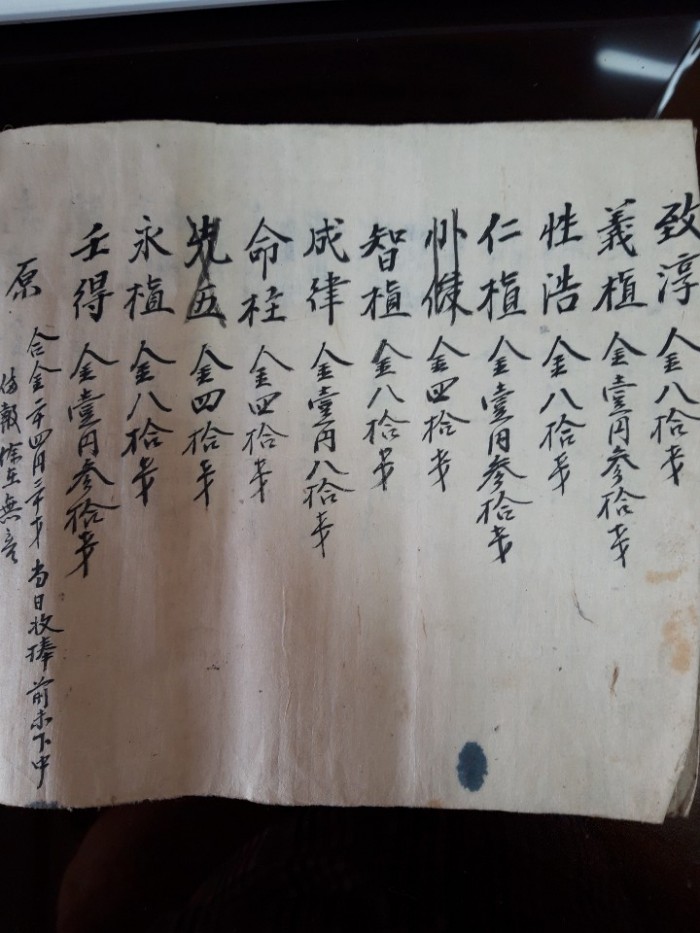 致淳 金八拾戔
義植 金壹円參拾戔
性浩 金八拾戔
仁植 金壹円參拾戔
金四拾戔
智植 金八拾戔
成律 金壹円八拾戔
命柱 金四拾戔
金四拾戔
永植 金八拾戔
壬得 金壹円參拾戔
原 合金 四円 当日收捧 前未下中
無言